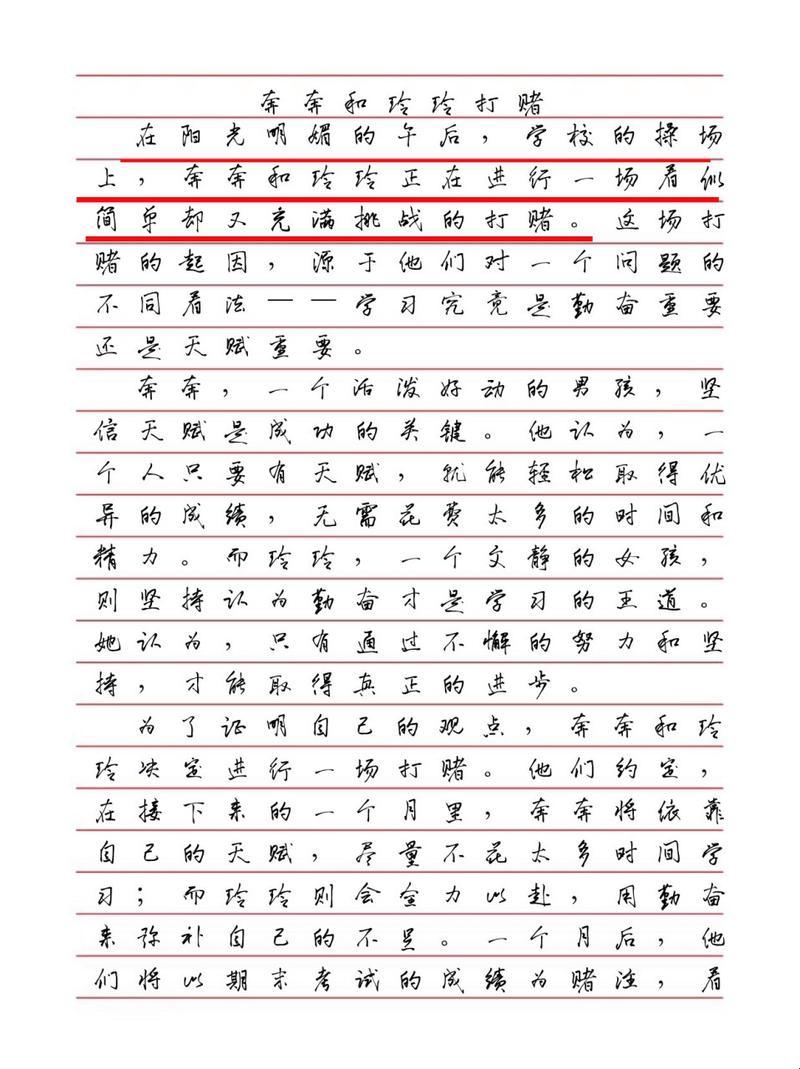 奔奔和玲玲打赌
在阳光明媚的午后，学校的操场
上，奔奔和玲玲正在进行一场看似
简单却又充满挑战的打赌。这场打
赌的起因，源于他们对一个问题的
不同看法——学习究竟是勤奋重要
还是天赋重要。
奔奔，一个活泼好动的男孩，坚
信天赋是成功的关键。他认为，一
个人只要有天赋，就能轻松取得优
异的成绩，无需花费太多的时间和
精力。而玲玲，一个文静的女孩，
则坚持认为勤奋才是学习的王道。
她认为，只有通过不懈的努力和坚
持，才能取得真正的进步。
为了证明自己的观点，奔奔和玲
玲决定进行一场打赌。他们约定，
在接下来的一个月里，奔奔将依靠
自己的天赋，尽量不花太多时间学
习；而玲玲则会全力以赴，用勤奋
来弥补自己的不足。一个月后，他
们将以期末考试的成绩为赌注，看